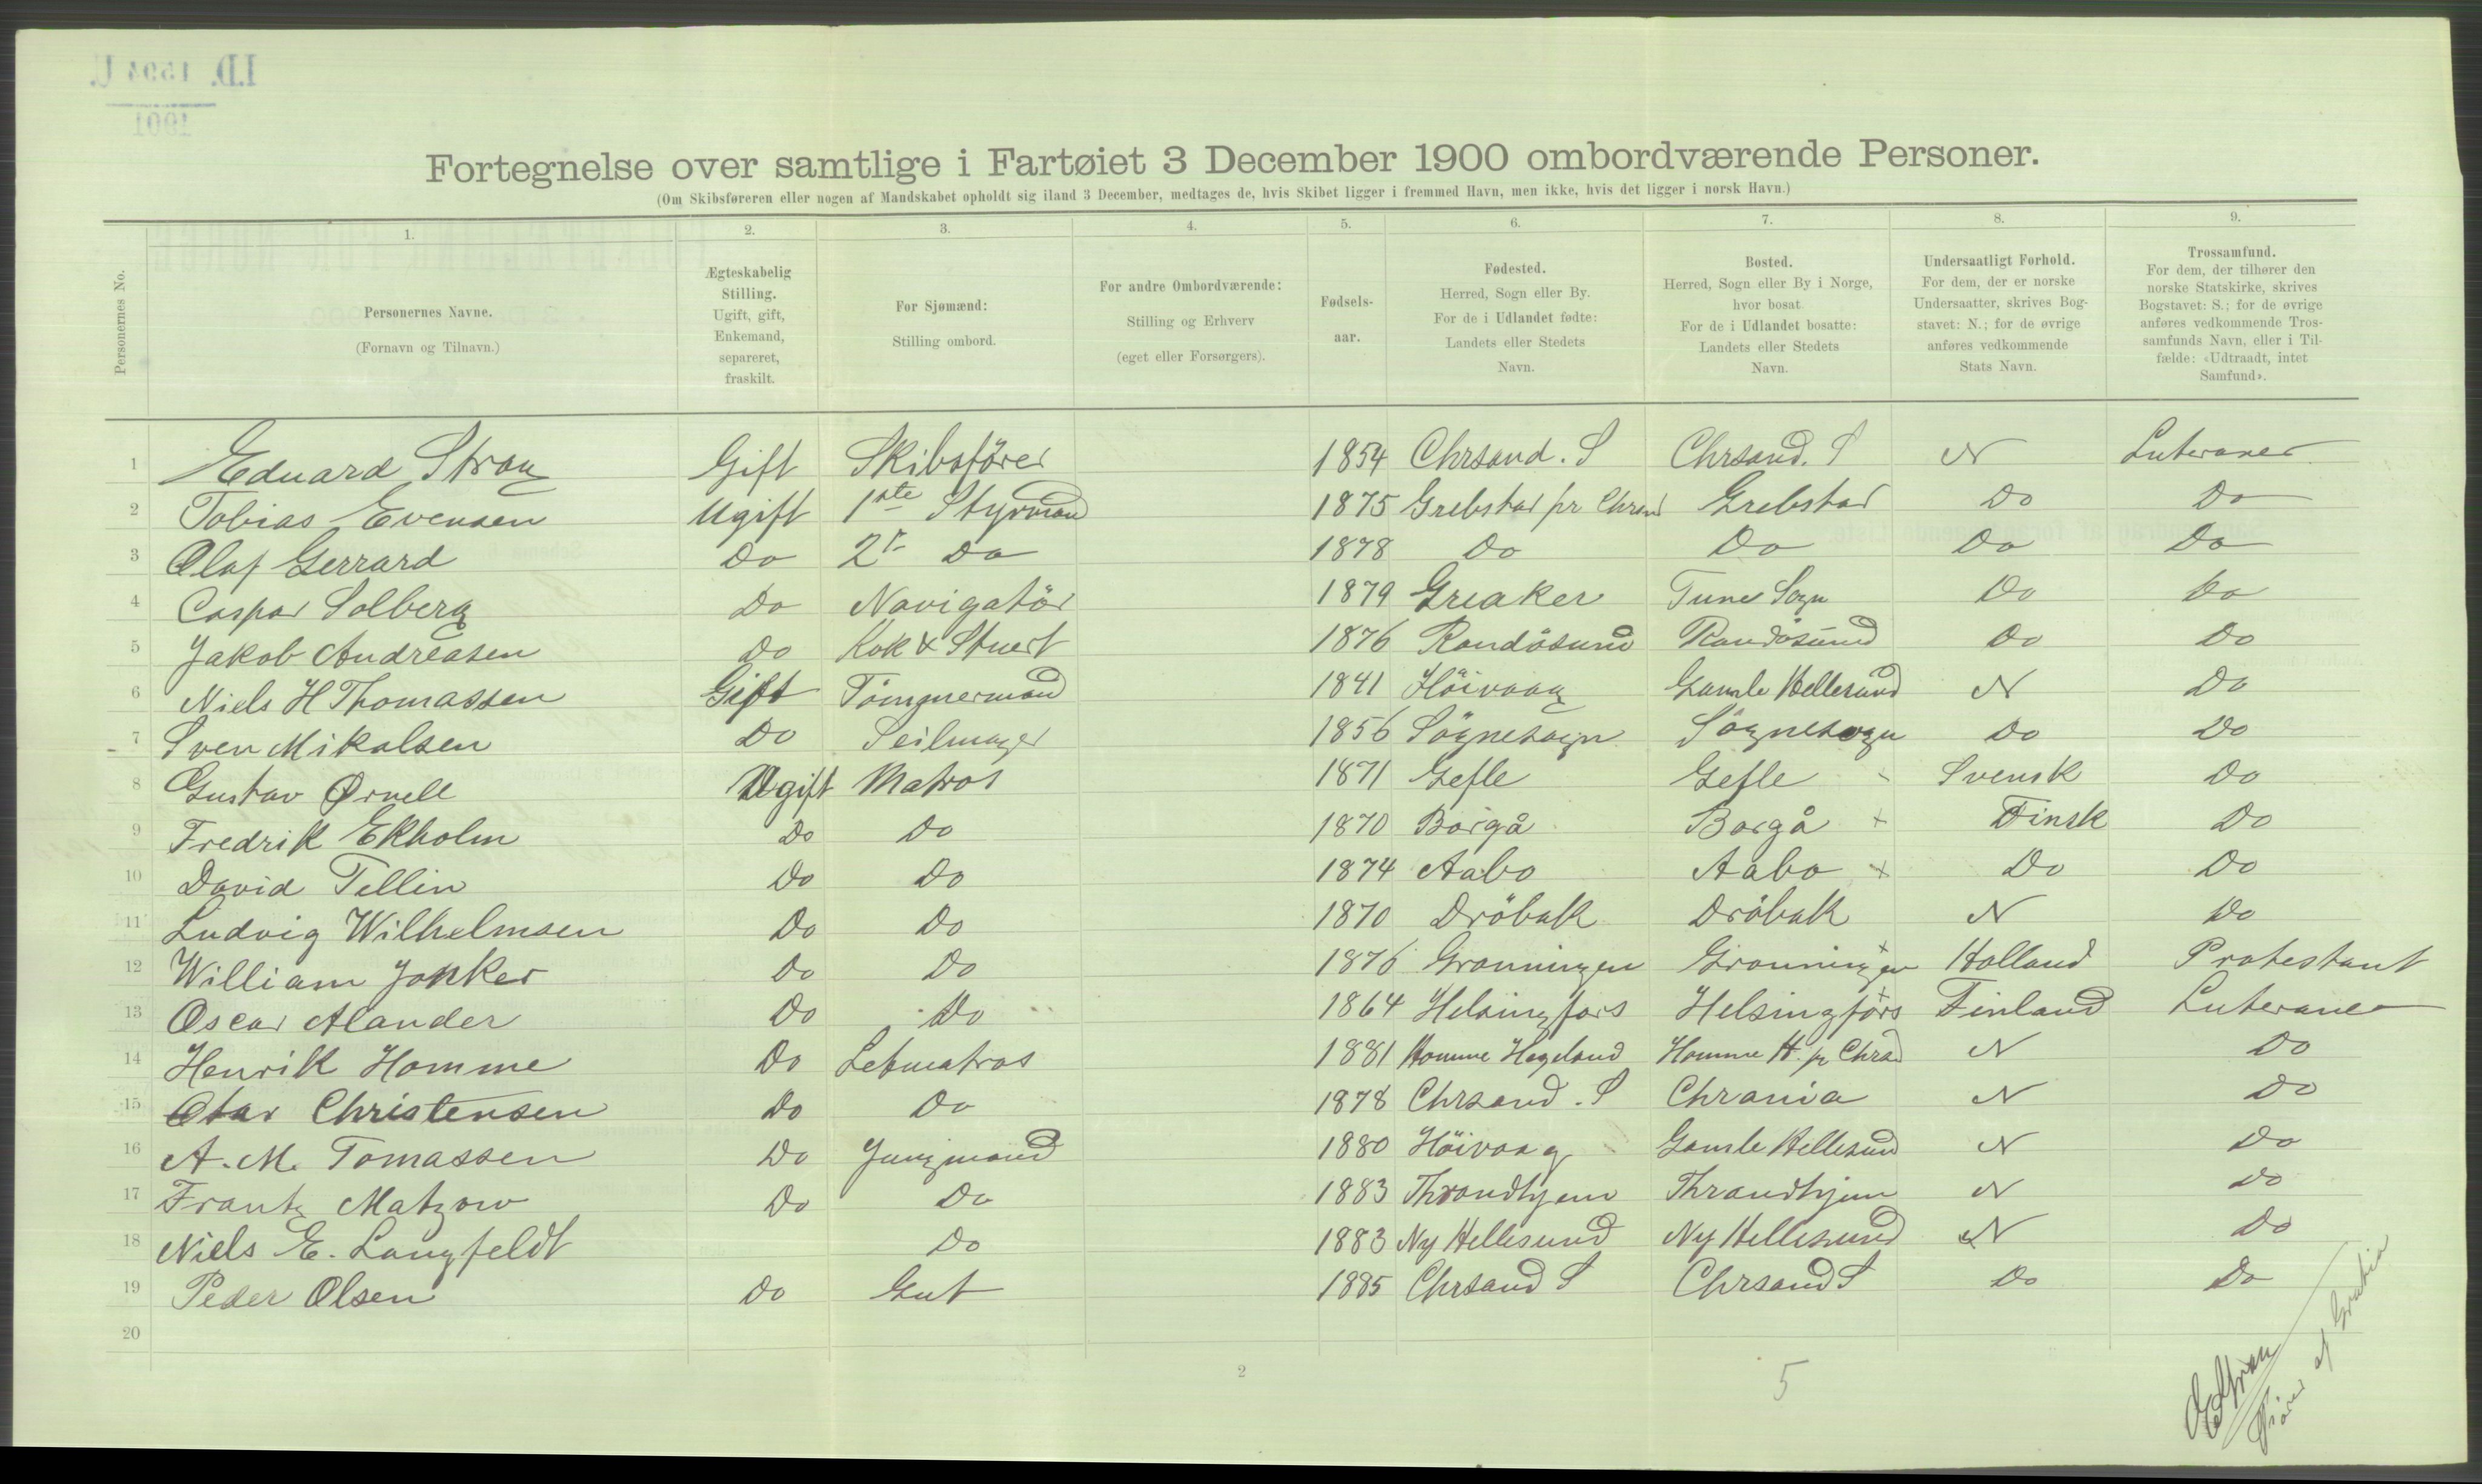 I.D. 1594 U.
1901
Fortegnelse over samtlige i Fartøiet 3 December 1900 ombordværende Personer.
(Om Skibsføreren eller nogen af Mandskabet opholdt sig iland 3 December, medtages de, hvis Skibet ligger i fremmed Havn, men ikke, hvis det ligger i norsk Havn.)
1. 2. 3. 4. 5. 6. 7. 8. 9.
Personernes No.
Personernes Navne.
(Fornavn og Tilnavn.)
Ægteskabelig
Stilling.
Ugift, gift,
Enkemand,
separeret,
fraskilt.
For Sjømænd:
Stilling ombord.
For andre Ombordværende:
Stilling og Erhverv
(eget eller Forsørgers).
Fødsels-
aar.
Fødested.
Herred, Sogn eller By.
For de i Udlandet fødte:
Landets eller Stedets
Navn.
Bosted.
Herred, Sogn eller By i Norge,
hvor bosat
For de i Udlandet bosatte:
Landets eller Stedets
Navn.
Undersaatligt Forhold.
For dem, der er norske
Undersaatter, skrives Bog-
stavet: N.; for de øvrige
anføres vedkommende
Stats Navn.
Trossamfund.
For dem, der tilhører den
norske Statskirke, skrives
Bogstavet: S.; for de øvrige
anføres vedkommende Tros-
samfunds Navn, eller i Til-
fælde: «Udtraadt, intet
Samfund».
1 Eduard Stray Gift Skibsförer 1854 Chrsand. S Chrsand. S N Luteraner
2 Tobias Evensen Ugift 1ste Styrmand 1875 Grebstad pr Chrsnd Grebstad Do Do
3 Olaf Gerrard Do 2n Do 1878 Do Do Do Do
4 Caspar Solberg Do Navigatör 1879 Greaker Tune Sogn Do Do
5 Jakob Andreasen Do Kok & Stuert 1876 Randösund Randösund Do Do
6 Niels H Thomassen Gift Tömmermand 1841 Höivaag Gamle Hellesund N Do
7 Sven Mikalsen Do Seilmager 1856 Sögnesogn Sögnesogn Do Do
8 Gustav Ørnell Ugift Matros 1871 Gefle Gefle Svensk Do
9 Fredrik Ekholm Do Do 1870 Borgå Borgå + Finsk Do
10 David Tellin Do Do 1874 Aabo Aabo + Do Do
11 Ludvig Wilhelmsen Do Do 1870 Dröbak Dröbak N Do
12 William Jonker Do Do 1876 Gronningen Gronningen + Holland Protestant
13 Oscar Alander Do Do 1864 Helsingfors Helsingfors + Finland Luteraner
14 Henrik Homme Do Letmatros 1881 Homme Hægeland Homme H. pr Chrsd N Do
15 Otar Christensen Do Do 1878 Chrsand. S Chrania N Do
16 A. M. Tomassen Do Jungmand 1880 Höivaag Gamle Hellesund N Do
17 Frantz Matzow Do Do 1883 Throndhjem Throndhjem N Do
18 Niels E. Langfeldt Do 1883 Ny Hellesund Ny Hellesund N Do
19 Peder Olsen Do Gut 1885 Chrsand S Chrsand S Do Do
20
2
5
E Stray
Förer af Gratia